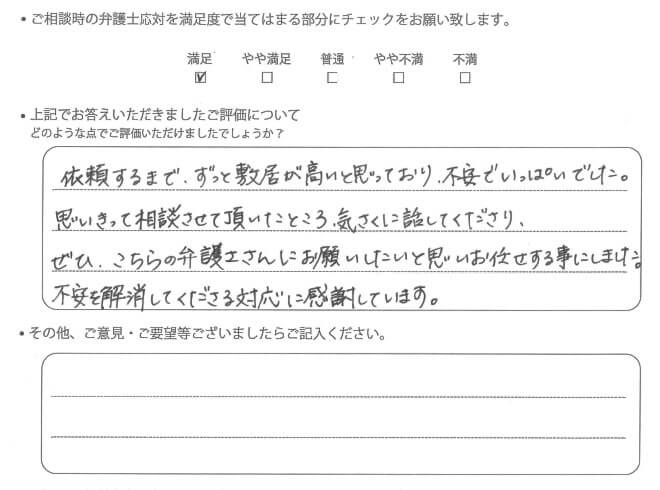 ・ご相談時の弁護士応対を満足度で当てはまる部分にチェックをお願い致します。
満足 やや満足 普通 やや不満 不満
☑ □ □ □ □
・上記でお答えいただきましたご評価について
どのような点でご評価いただけましたでしょうか？
依頼するまで、ずっと敷居が高いと思っており、不安でいっぱいでした。
思いきって相談させて頂いたところ、気さくに話してくださり、
ぜひ、こちらの弁護士さんにお願いしたいと思いお任せする事にしました。
不安を解消してくださる対応に感謝しています。
・その他、ご意見・ご要望等ございましたらご記入ください。